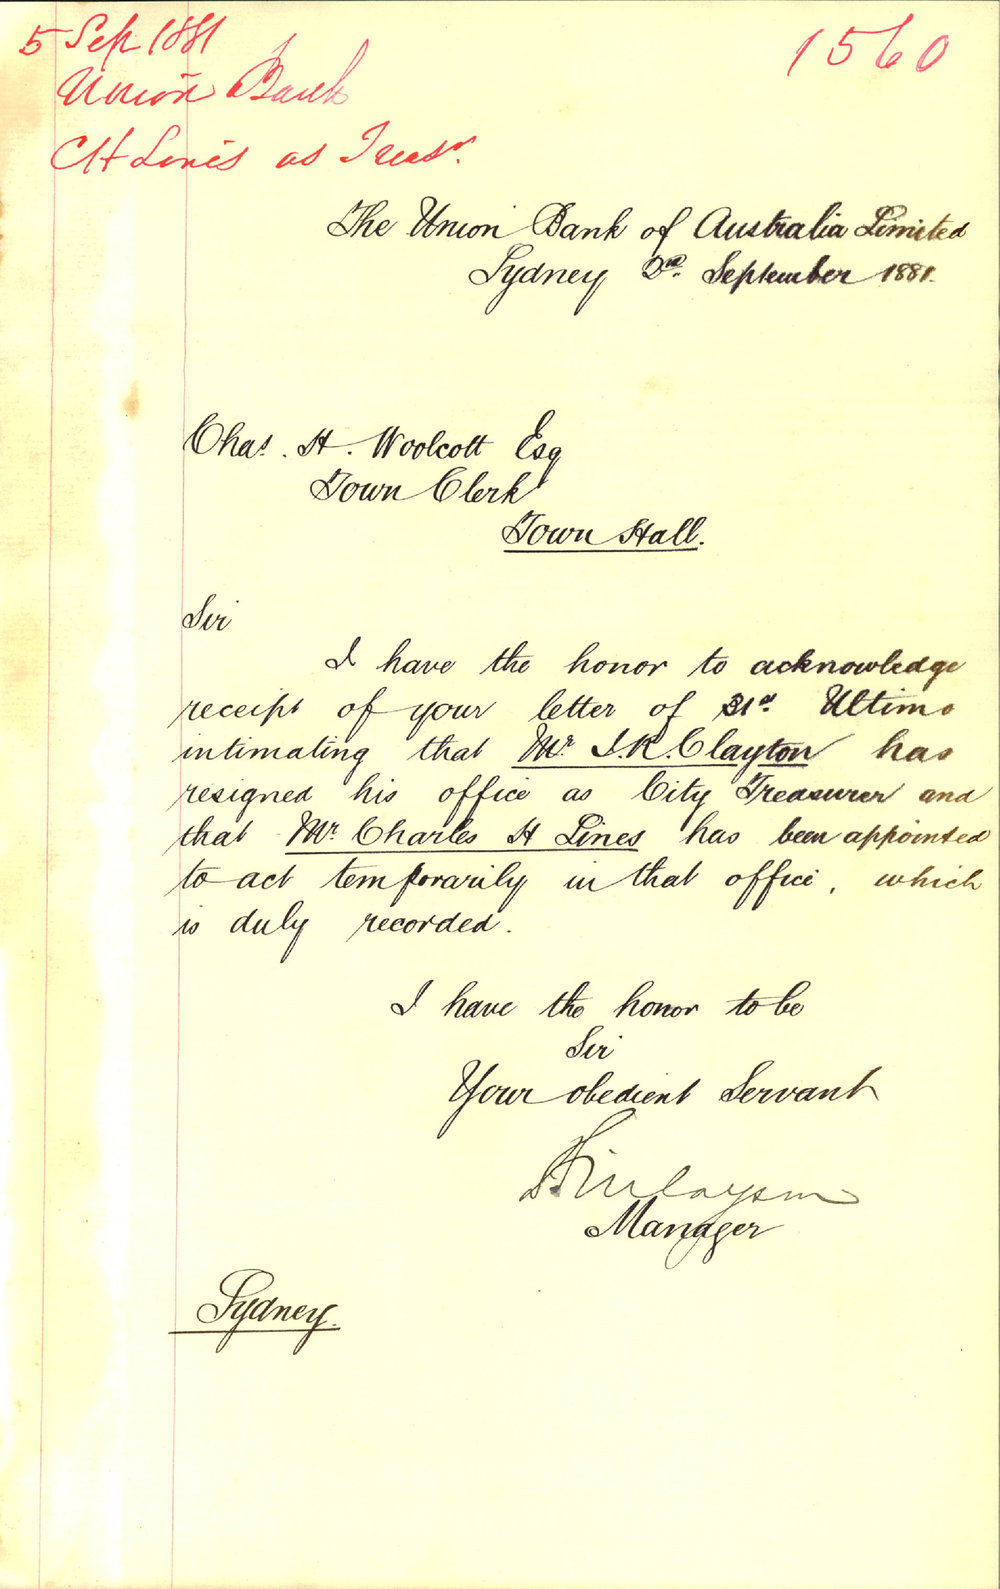 5 Sep 1881
1560
Union Bank
CH Lines as Treasr.
The Union Bank of Australia Limited
Sydney 2nd. September 1881.
Chas. H. Woolcott Esq
Town Clerk
Town Hall.
Sir
I have the honor to acknowledge
receipt of your letter of 31st. Ultimo
intimating that Mr. J.R. Clayton has
resigned his office as City Treasurer and
that Mr. Charles H Lines has been appointed
to act temporarily in that office, which
is duly recorded.
I have the honor to be
Sir
Your obedient Servant
Finlayson
Manager
Sydney.